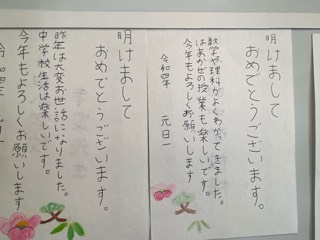 明けまして
おめでとうございます。
数学や理科がよくわかってきました。
はあかせの授業も楽しいです。
今年もよろしくお願いします
令和四年 元日
明けまして
おめでとうございます。
昨年は大変お世話になりました。
中学校生活は楽しいです。
今年もよろしくお願いします
令和四年 元日